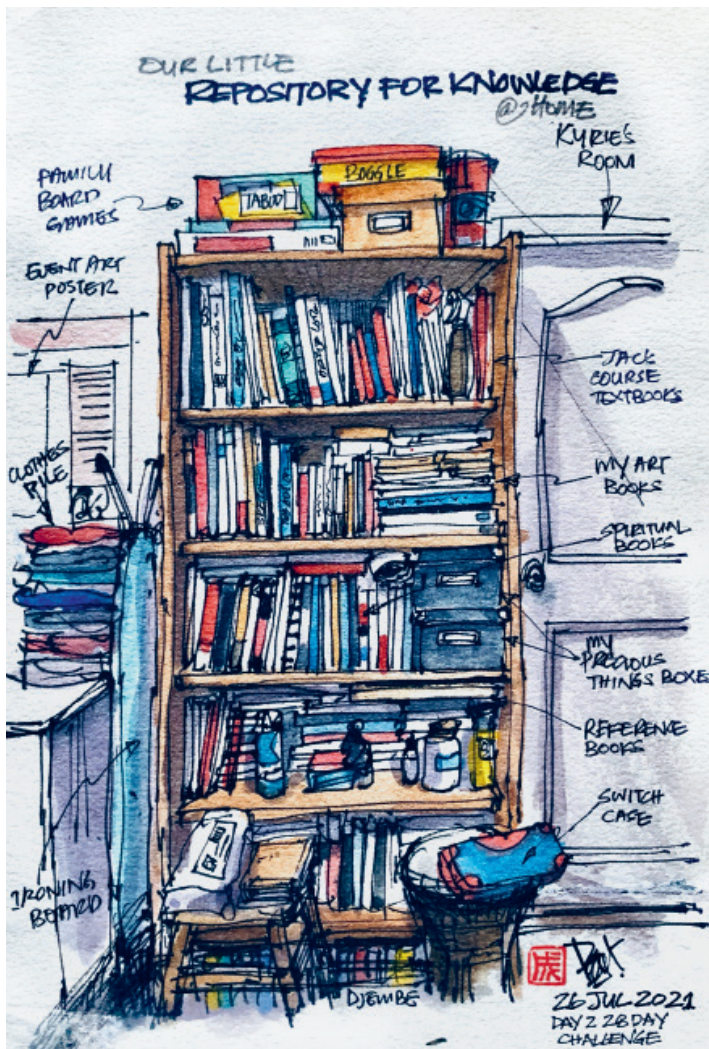 OUR LITTLE
REPOSITORY FOR KNOWLEDGE
@ HOME
KYRIE'S
ROOM
FAMILY
BOARD
GAMES
BOGGLE
TABOO
EVENT ART
POSTER
JACK
COURSE
TEXTBOOKS
CLOTHES
PILE
MY ART
BOOKS
SPIRITUAL
BOOKS
MY
PRECIOUS
THINGS BOXES
REFERENCE
BOOKS
SWITCH
CASE
IRONING
BOARD
DJEMBE
成
26 JUL 2021
DAY 2 28 DAY
CHALLENGE